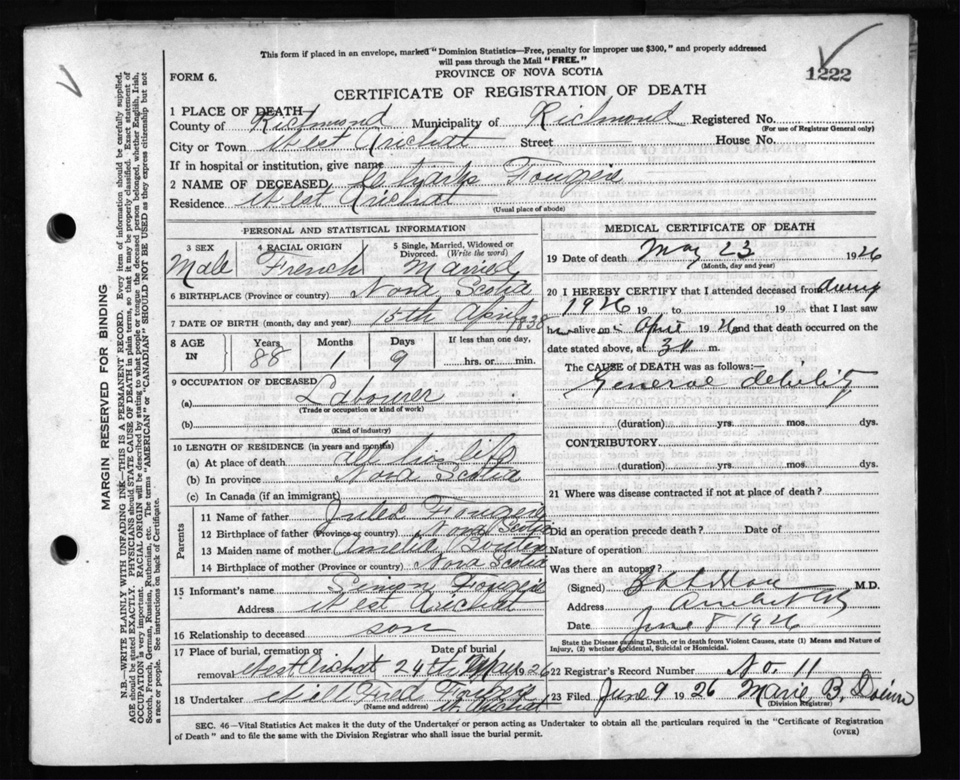 This form if placed in an envelope, marked "Dominion Statistics—Free, penalty for improper use $300," and properly addressed
will pass through the Mail "FREE."
PROVINCE OF NOVA SCOTIA
1222
FORM 6.
CERTIFICATE OF REGISTRATION OF DEATH
1 PLACE OF DEATH
County of Richmond Municipality of Richmond Registered No.
(For use of Registrar General only)
City or Town West Arichat Street House No.
If in hospital or institution, give name
2 NAME OF DECEASED Fougere
Residence West Arichat
(Usual place of abode)
PERSONAL AND STATISTICAL INFORMATION
3 SEX 4 RACIAL ORIGIN 5 Single, Married, Widowed or Divorced. (Write the word)
Male French Married
6 BIRTHPLACE (Province or country) Nova Scotia
7 DATE OF BIRTH (month, day and year) 15th April 1838
8 AGE IN Years Months Days If less than one day,
88 1 9 hrs. or min.
9 OCCUPATION OF DECEASED
(a) Labourer
(Trade or occupation or kind of work)
(b)
(Kind of industry)
10 LENGTH OF RESIDENCE (in years and months)
(a) At place of death all his life
(b) In province Nova Scotia
(c) In Canada (if an immigrant)
Parents
11 Name of father Jules Fougere
12 Birthplace of father (Province or country) Nova Scotia
13 Maiden name of mother Amelia Boutin
14 Birthplace of mother (Province or country) Nova Scotia
15 Informant's name Simon Fougere
Address West Arichat
16 Relationship to deceased son
17 Place of burial, cremation or removal Date of burial
West Arichat 24th May 1926
18 Undertaker Fred Fougere
(Name and address) W. Arichat
MEDICAL CERTIFICATE OF DEATH
19 Date of death May 23 1926
(Month, day and year)
20 I HEREBY CERTIFY that I attended deceased from during
1926 19 to 19 that I last saw
h alive on April 1926 and that death occurred on
date stated above, at 3 m.
The CAUSE of DEATH was as follows:—
General debility
(duration) yrs. mos. dys.
CONTRIBUTORY
(duration) yrs. mos. dys.
21 Where was disease contracted if not at place of death?
Did an operation precede death? Date of
Nature of operation
Was there an autopsy?
(Signed) M.D.
Address Arichat NS
Date June 8 1926
State the Disease causing Death, or in death from Violent Causes, state (1) Means and Nature of
Injury, (2) whether Accidental, Suicidal or Homicidal.
22 Registrar's Record Number No. 11
23 Filed June 9 1926 Marie B.
(Division Registrar)
SEC. 46—Vital Statistics Act makes it the duty of the Undertaker or person acting as Undertaker to obtain all the particulars required in the "Certificate of Registration
of Death" and to file the same with the Division Registrar who shall issue the burial permit.
(OVER)
MARGIN RESERVED FOR BINDING
N.B.—WRITE PLAINLY WITH UNFADING INK—THIS IS A PERMANENT RECORD. Every item of information should be carefully supplied.
AGE should be stated EXACTLY. PHYSICIANS should STATE CAUSE OF DEATH in plain terms, so that it may be properly classified. Exact statement of
OCCUPATION is very important. RACIAL ORIGIN will be described by stating to what people or tongue the deceased person belonged, whether English, Irish,
Scotch, French, German, Russian, Ruthenian, etc. The terms "AMERICAN" or "CANADIAN" SHOULD NOT BE USED as they express citizenship but not
a race or people. See instructions on back of Certificate.